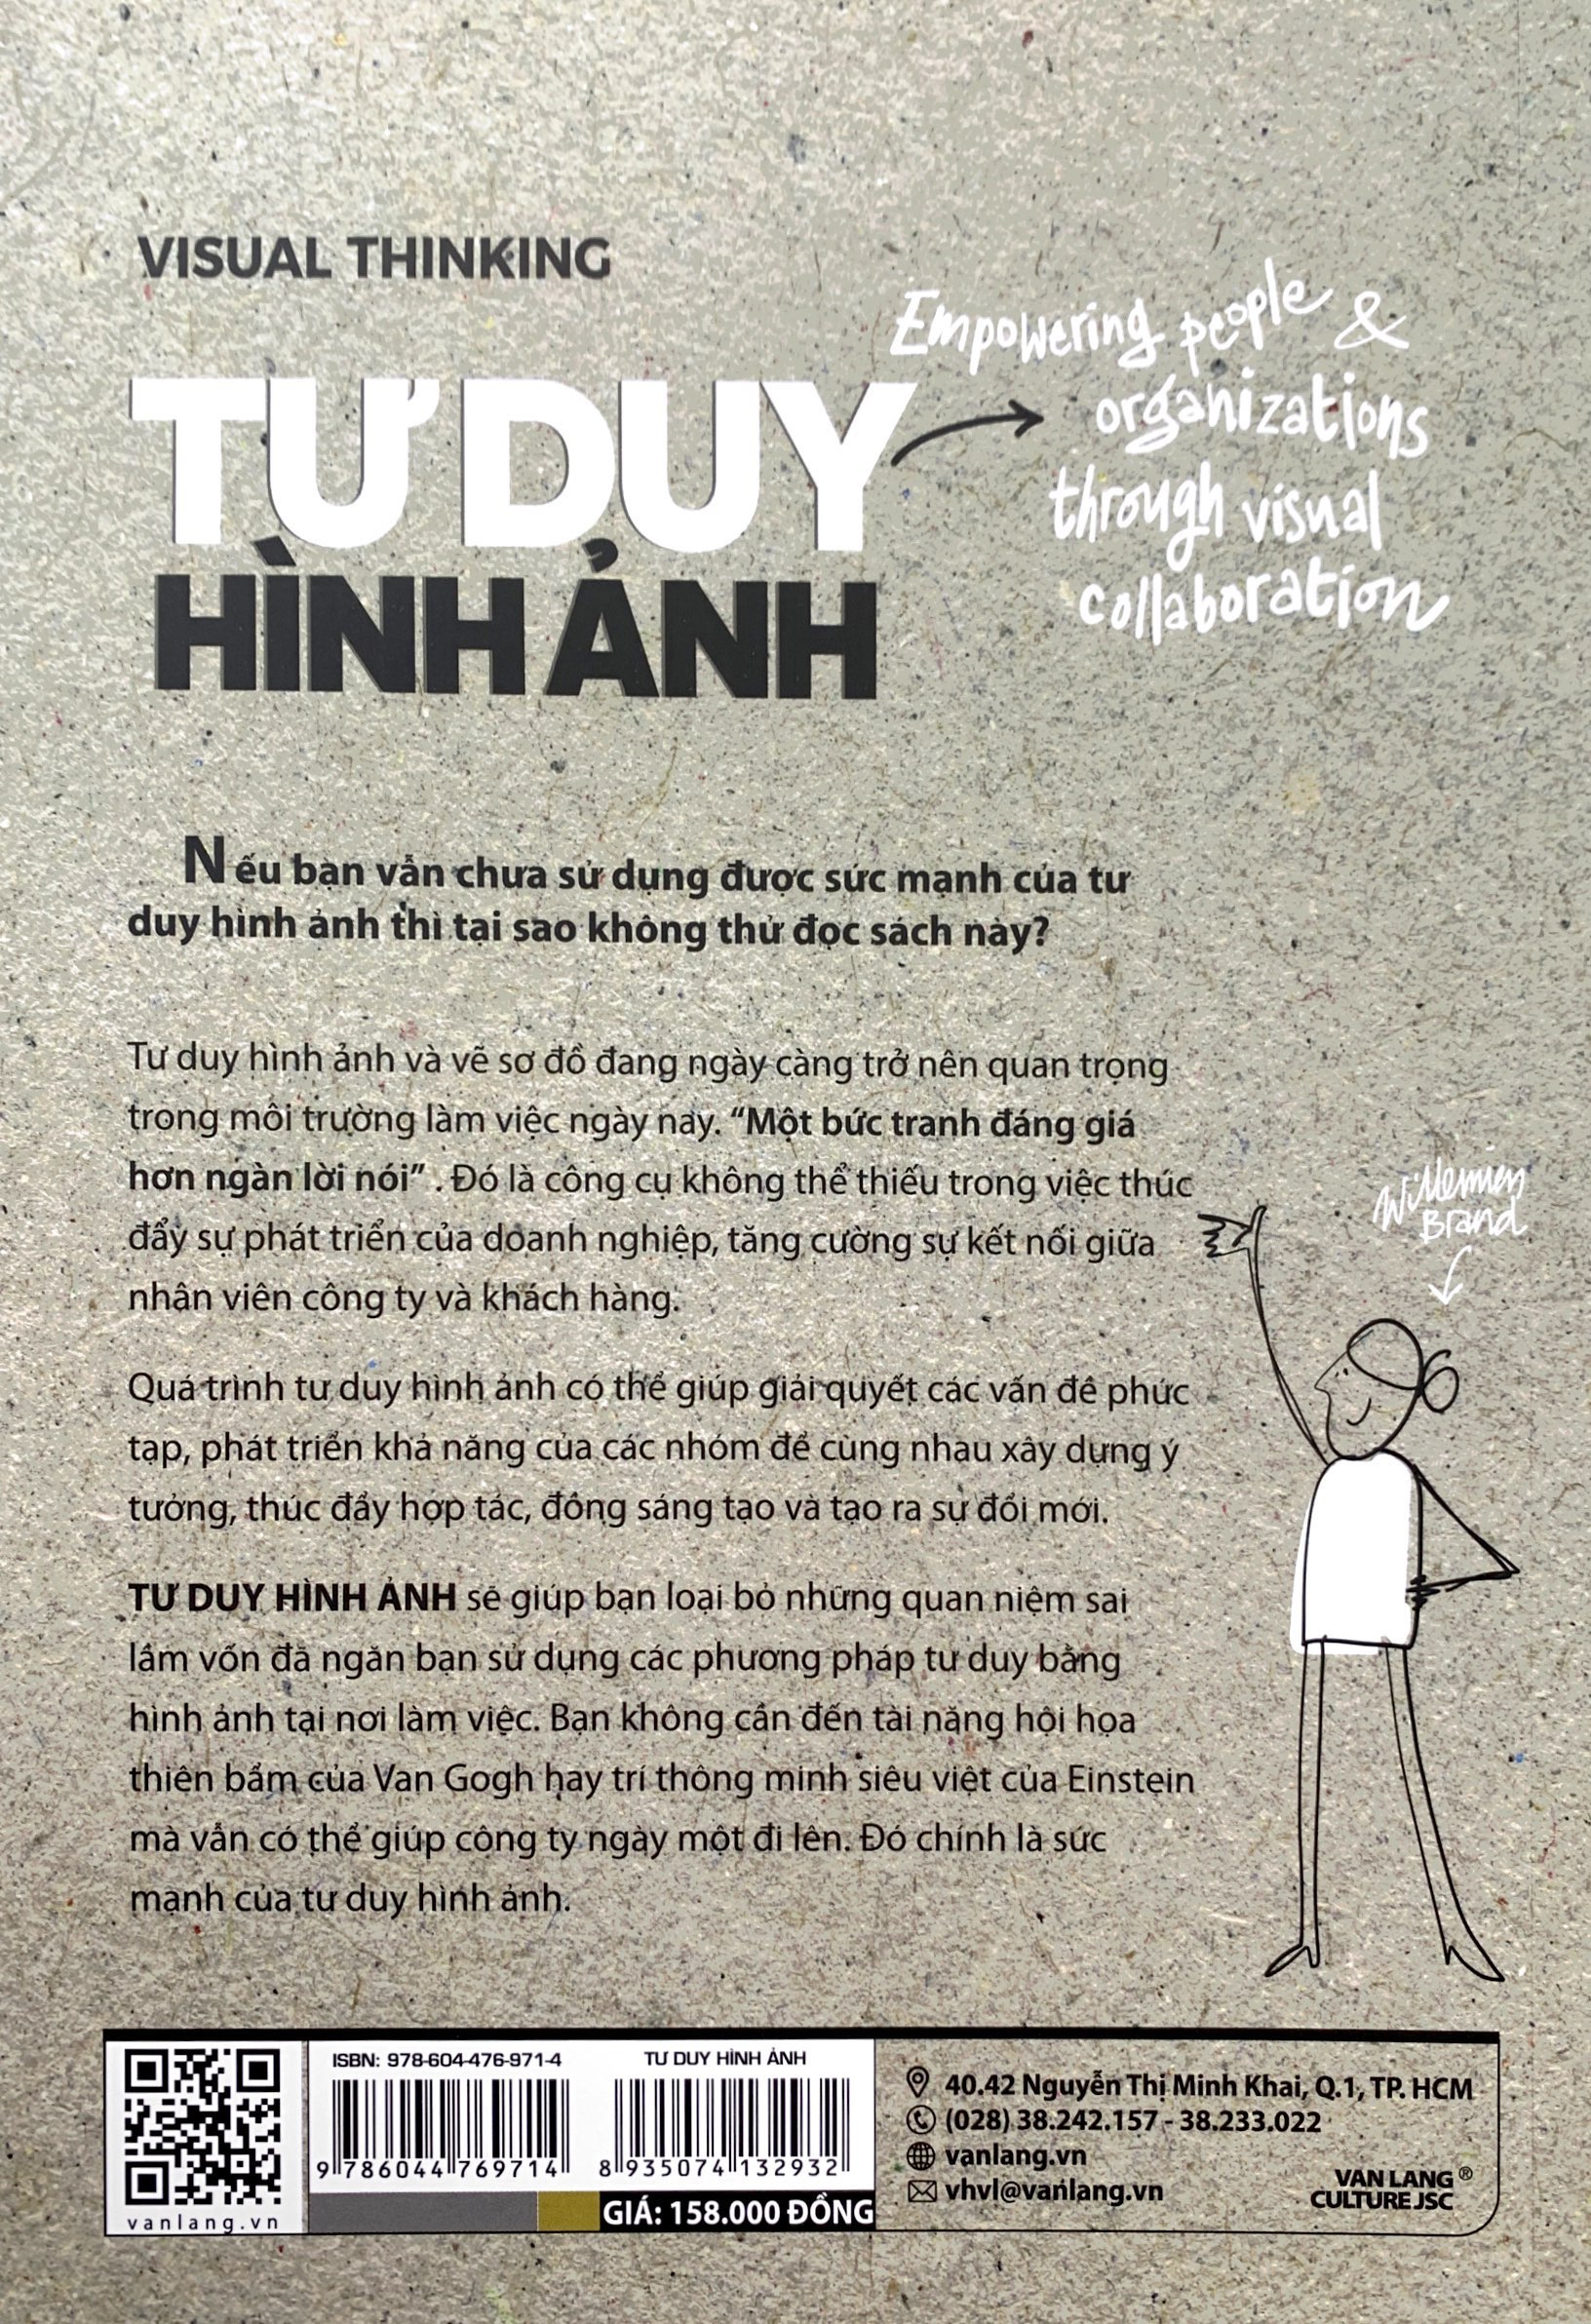 VISUAL THINKING
TƯ DUY
HÌNH ẢNH
Empowering people &
organizations
through visual
collaboration
Nếu bạn vẫn chưa sử dụng được sức mạnh của tư
duy hình ảnh thì tại sao không thử đọc sách này?
Tư duy hình ảnh và vẽ sơ đồ đang ngày càng trở nên quan trọng
trong môi trường làm việc ngày nay. “Một bức tranh đáng giá
hơn ngàn lời nói” . Đó là công cụ không thể thiếu trong việc thúc
đẩy sự phát triển của doanh nghiệp, tăng cường sự kết nối giữa
nhân viên công ty và khách hàng.
Willemien
Brand
Quá trình tư duy hình ảnh có thể giúp giải quyết các vấn đề phức
tạp, phát triển khả năng của các nhóm để cùng nhau xây dựng ý
tưởng, thúc đẩy hợp tác, đồng sáng tạo và tạo ra sự đổi mới.
TƯ DUY HÌNH ẢNH sẽ giúp bạn loại bỏ những quan niệm sai
lầm vốn đã ngăn bạn sử dụng các phương pháp tư duy bằng
hình ảnh tại nơi làm việc. Bạn không cần đến tài năng hội họa
thiên bẩm của Van Gogh hay trí thông minh siêu việt của Einstein
mà vẫn có thể giúp công ty ngày một đi lên. Đó chính là sức
mạnh của tư duy hình ảnh.
vanlang.vn
ISBN: 978-604-476-971-4
9 786044 769714
TƯ DUY HÌNH ẢNH
8 935074 132932
GIÁ: 158.000 ĐỒNG
40.42 Nguyễn Thị Minh Khai, Q.1, TP. HCM
(028) 38.242.157 - 38.233.022
vanlang.vn
vhvl@vanlang.vn
VAN LANG ®
CULTURE JSC